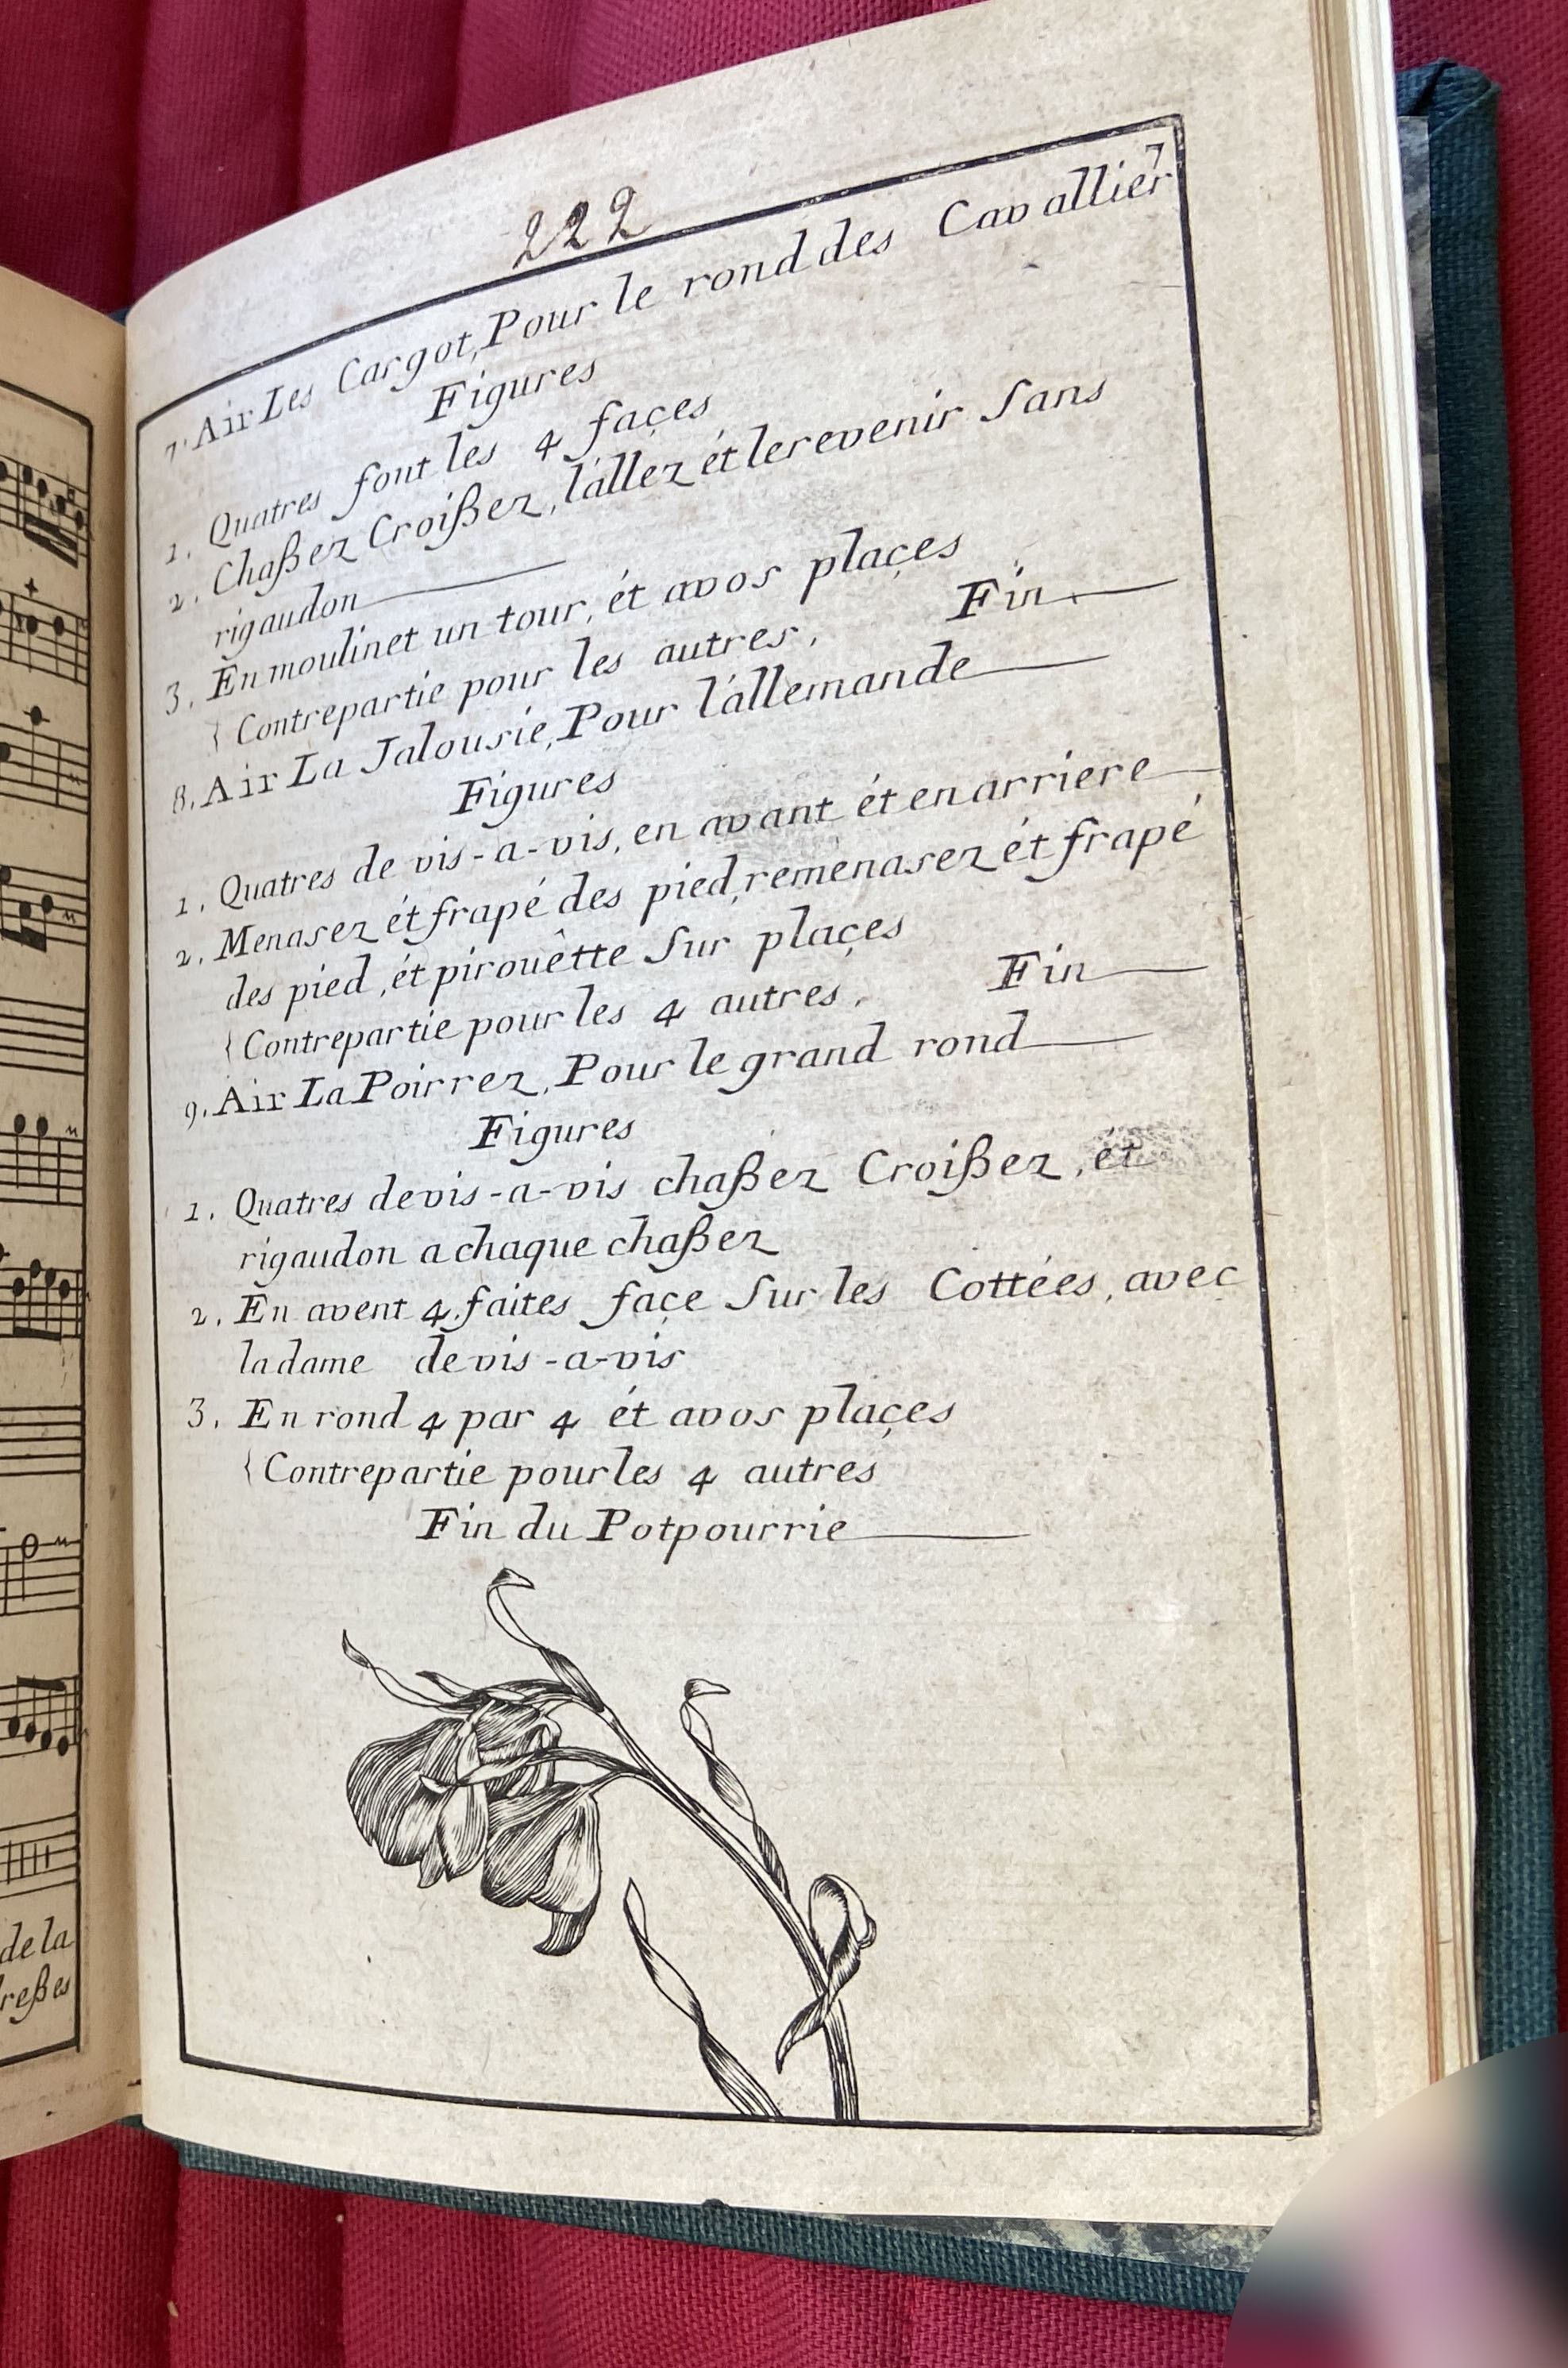 de la
reßes
222
7
7. Air Les Cargot, Pour le rond des Cavallier
Figures
1. Quatres font les 4 façes
2. Chaßez Croißez, l'allez ét le revenir Sans
rigaudon
3. En moulinet un tour, ét a vos plaçes
{ Contrepartie pour les autres. Fin
8. Air La Jalousie, Pour l'allemande
Figures
1. Quatres de vis-a-vis, en avant ét en arriere
2. Menasez ét frapé des pied, remenasez ét frapé
des pied, ét pirouêtte Sur plaçes
{ Contrepartie pour les 4 autres. Fin
9. Air La Poirrez, Pour le grand rond
Figures
1. Quatres de vis-a-vis chaßez Croißez, ét
rigaudon a chaque chaßez
2. En avent 4. faites façe Sur les Cottées, avec
la dame de vis-a-vis
3. En rond 4 par 4 ét a vos plaçes
{ Contrepartie pour les 4 autres
Fin du Potpourrie